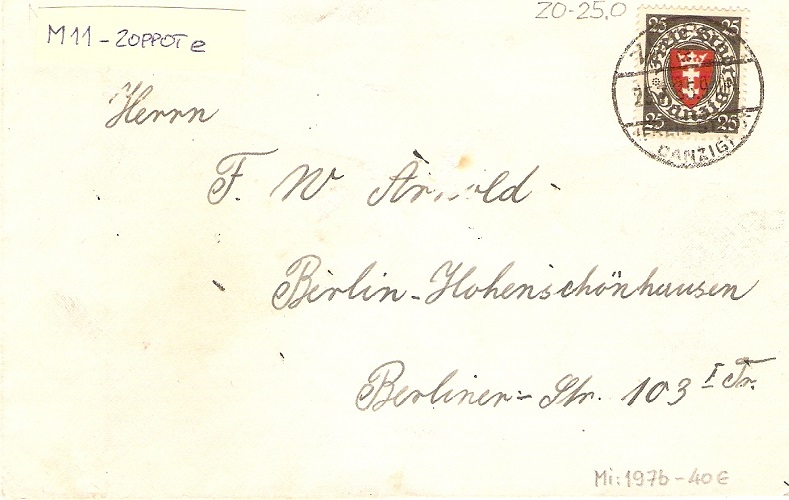 M11 - ZOPPOT e
ZO-25,0
25 25
Freie Stadt
Danzig
25 25
DANZIG
Herrn
F. W Arnold
Berlin-Hohenschönhausen
Berliner-Str. 103 I Tr.
Mi: 197b - 40€